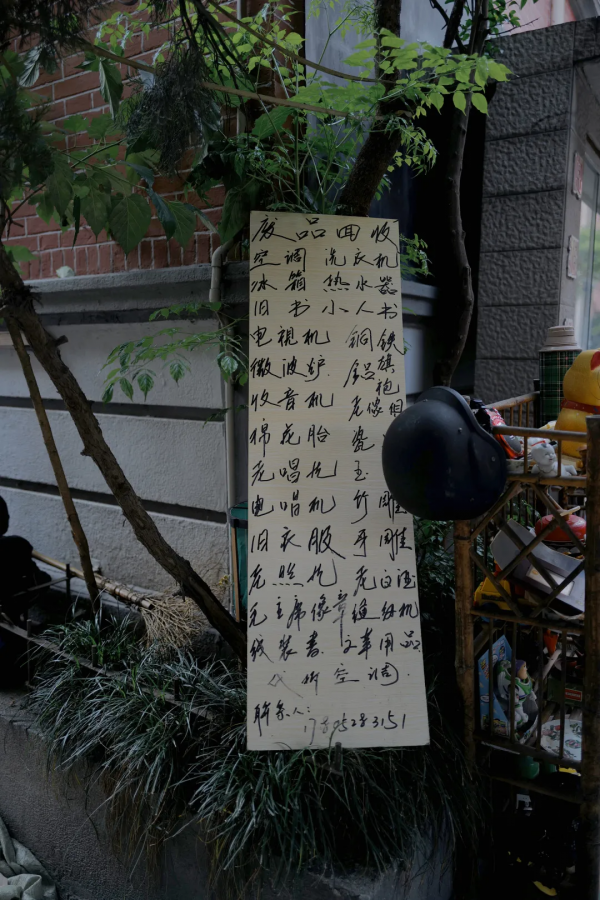 废品回收
空调 洗衣机
冰箱 热水器
旧书 小人书
电视机 铜铁
微波炉 铝旗袍
收音机 老像
棉花胎 瓷
老唱片 玉
电唱机 竹雕
旧衣服 牙雕
老照片 老白酒
毛主席像章 缝纫机
线装书 文革用品
代拆空调
联系人: